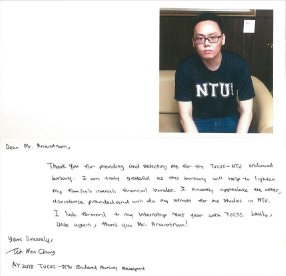 NTU
Dear Mr. 
Thank you for providing and selecting me for the TOCSS-NTU endowed
bursary. I am truly grateful as this bursary will help to lighten
my family's overall financial burden. I sincerely appreciate the
assistance provided and will do my utmost for my studies in NTU.
I look forward to my internship next year with TOCSS. Lastly,
Once again, thank you Mr.
Yours Sincerely,
AY 2018 TOCSS-NTU Endowed Bursary Recipient